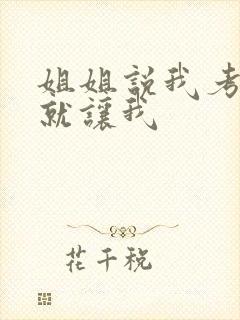 姐姐説我考
就讓我
花千税